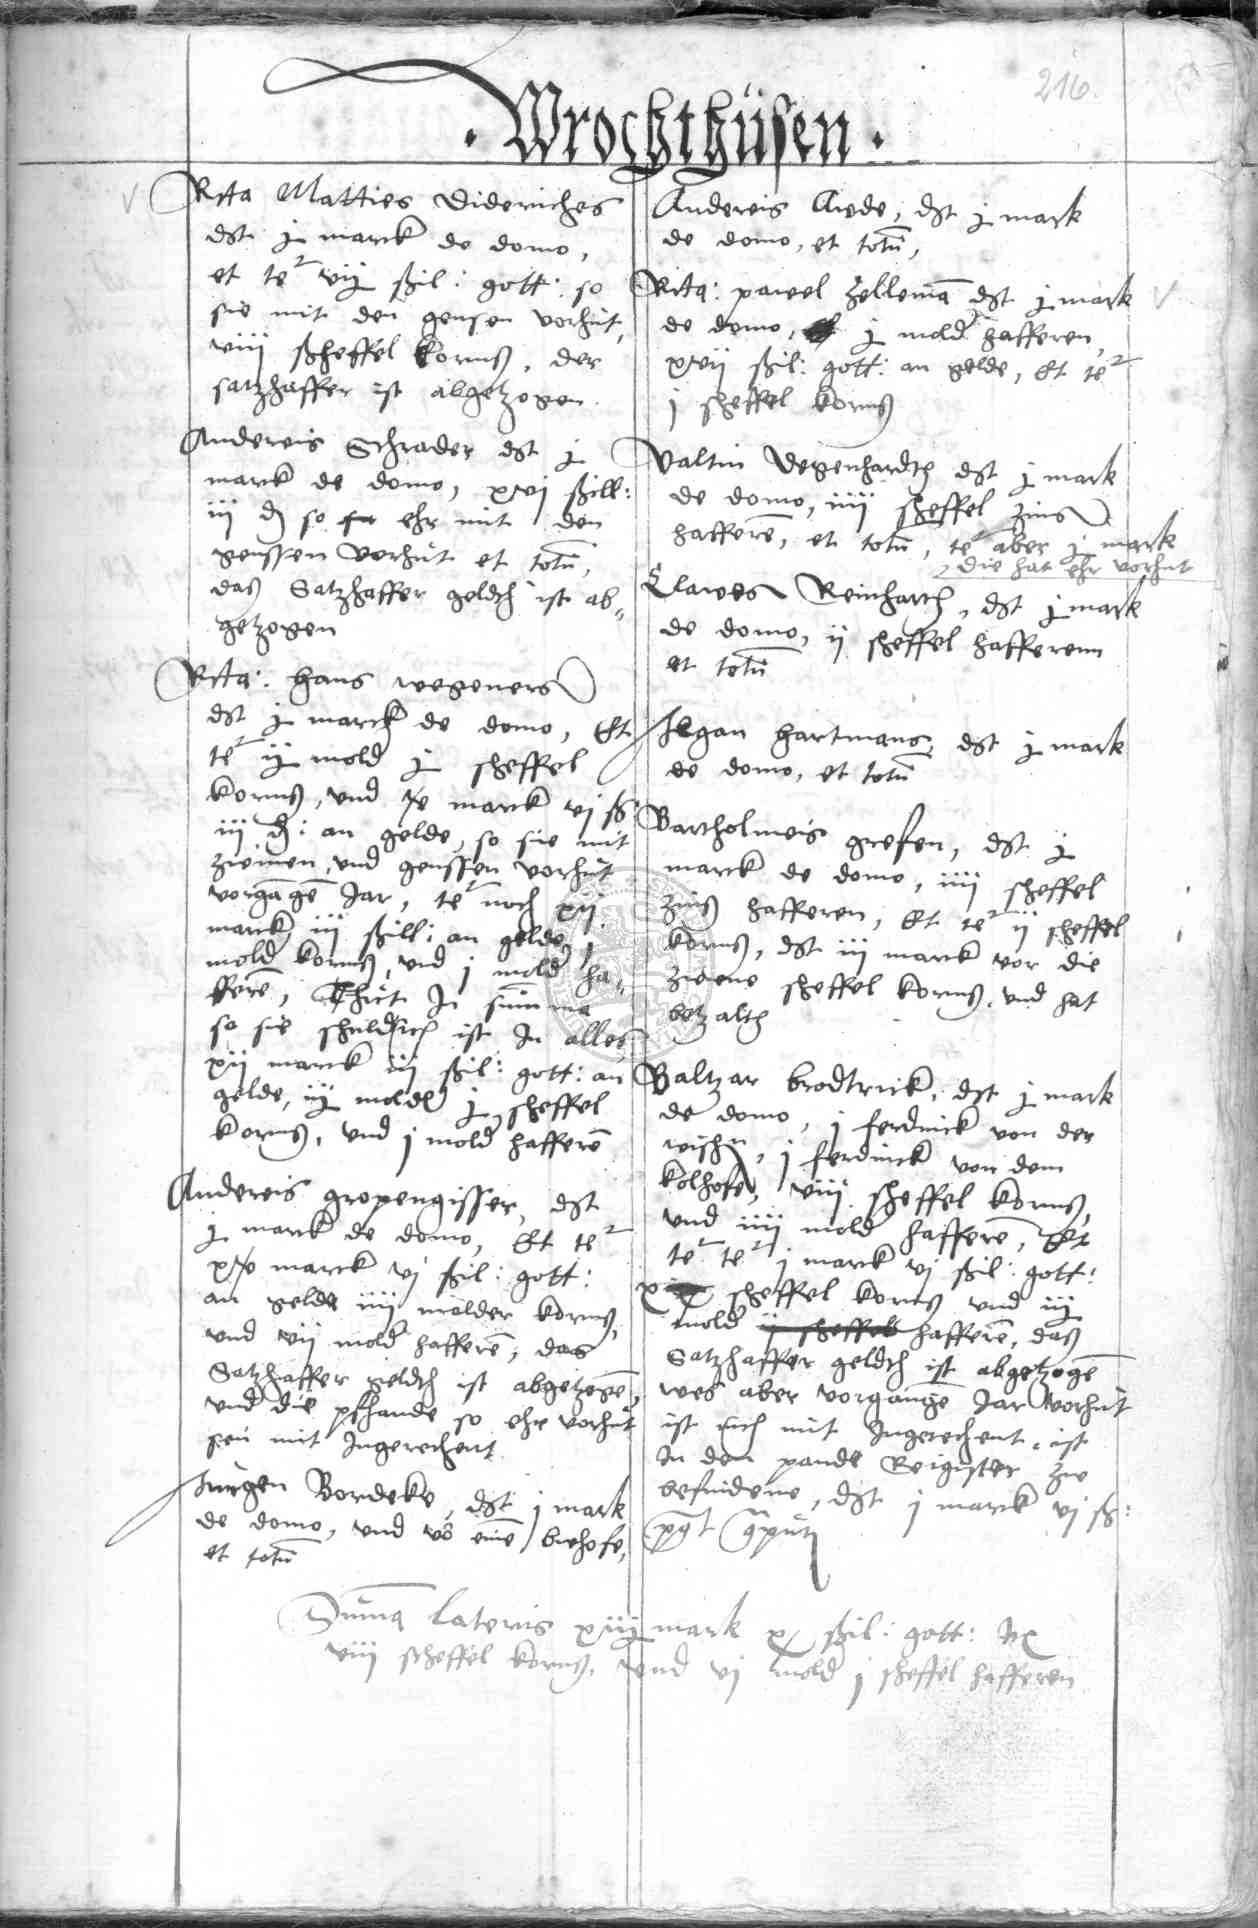 216.
. Wrochthüsen .
Rcta Matties Dideriches
dst j marck de domo,
et teʳ vij ßil: gott: so
sie mit den gensen vorhüt,
viij scheffel korns, der
satzhaffer ist abgetzogen
Andereis Schrader dst j
marck de domo, xvj ßill:
iij d so ehr mit den
genssen vorhüt et totū,
das Satzhaffer geldt ist ab„
getzogen
Rcta: Hans wegeners
dst j marck de domo, Et
teʳ ij mold j scheffel
korns, vnd marck vj ß
iij d: an gelde, so sie mit
zweinen vnd genssen vorhüt
vorgāgē Jar, teʳ noch xij
marck iij ßill: an gelde, j
mold korns, vnd j mold ha„
fferē, Thut In summa
so sie schuldich ist In alles
xij marck iij ßil: gott: an
gelde, iij molder j scheffel
korns, vnd j mold hafferē
Andereis gropengisser, dst
j marck de domo, Et teʳ
marck vj ßil: gott:
an gelde iiij molder korns,
vnd vij mold hafferē, das
Satzhaffer geldt ist abgetzogē,
vnd die pfhande so ehr vorhüt
sein mit Ingerechent
Jurgen Bordeke, dst j mark
de domo, vnd vō einē biehofe,
et totū
Andereis Aede, dst j mark
de domo, et totū,
Rcta: pawel Zellemā dst j mark
de domo, j mold hafferen,
xvij ßil: gott: an gelde, Et teʳ
j scheffel korns
Valtin Degenhardth dst j mark
de domo, iiij scheffel zins
hafferē, et totū, teʳ aber j mark
die hat ehr vorhut
Clawes Reinharth, dst j mark
de domo, ij scheffel hafferenn
et totū
Ilgan Hartmans, dst j mark
de domo, et totū
Bartholmeis grefen, dst j
marck de domo, iiij scheffel
zins hafferen, Et teʳ ij scheffel
korns, dst iij marck vor die
zweene scheffel korns, vnd hat
betzalth
Baltzar brodtrück, dst j mark
de domo, j ferdinck von der
wische, j ferdinck von dem
kolhofe, viij scheffel korns,
vnd iiij mold hafferē, Et
teʳ teʳ j marck vj ßil: gott:
x scheffel korns vnd iij
mold ij scheffel hafferē, das
Satzhaffer geldt ist abgetzogē
wes aber vorgangē Jar vorhüt
ist nich mit Ingerechent, ist
In den pande Reigister zw
befindene, dst j marck vj ß:

Sūma Lateris xiij mark x ßil: gott:
viij scheffel korns, vnd vj mold j scheffel hafferen